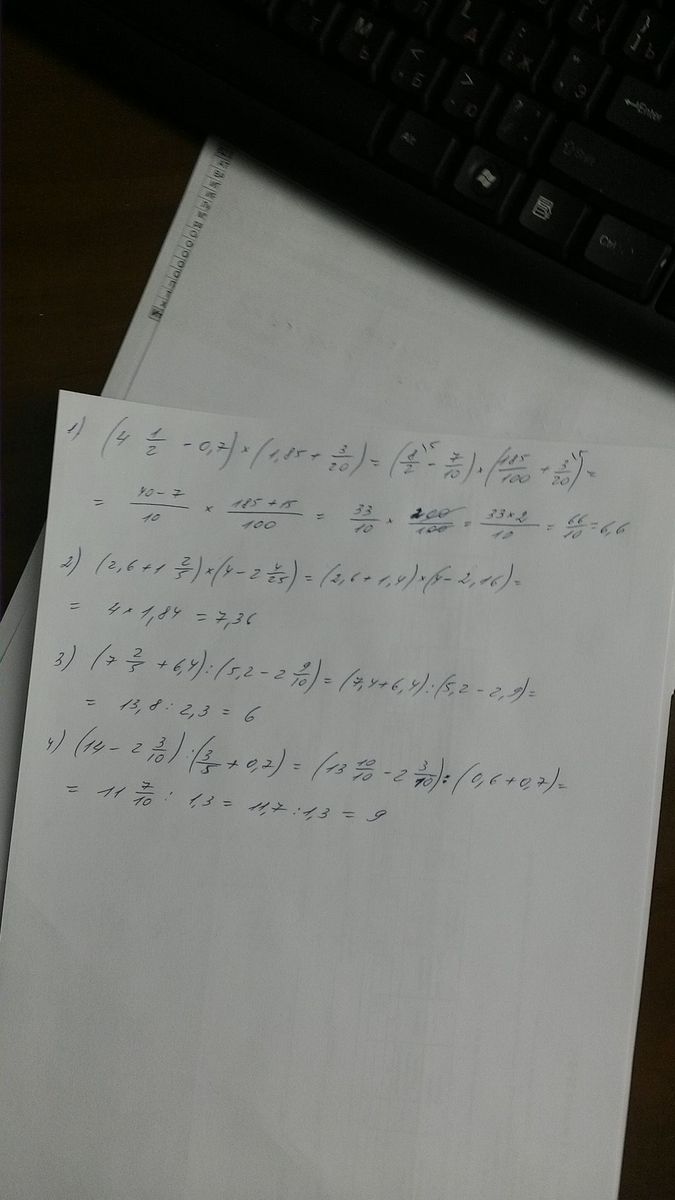 1) (4 1/2 - 0,7) × (1,85 + 3/20) = (8/2 \5 - 7/10) × (185/100 + 3/20 \5) =
= 40-7/10 × 185+15/100 = 33/10 × 200/100 = 33×2/10 = 66/10 = 6,6
2) (2,6 + 1 2/5) × (4 - 2 4/25) = (2,6 + 1,4) × (4 - 2,16) =
= 4 × 1,84 = 7,36
3) (7 2/5 + 6,4) : (5,2 - 2 9/10) = (7,4 + 6,4) : (5,2 - 2,9) =
= 13,8 : 2,3 = 6
4) (14 - 2 3/10) : (3/5 + 0,7) = (13 10/10 - 2 3/10) : (0,6 + 0,7) =
= 11 7/10 : 1,3 = 11,7 : 1,3 = 9
Enter
Shift
Ctrl